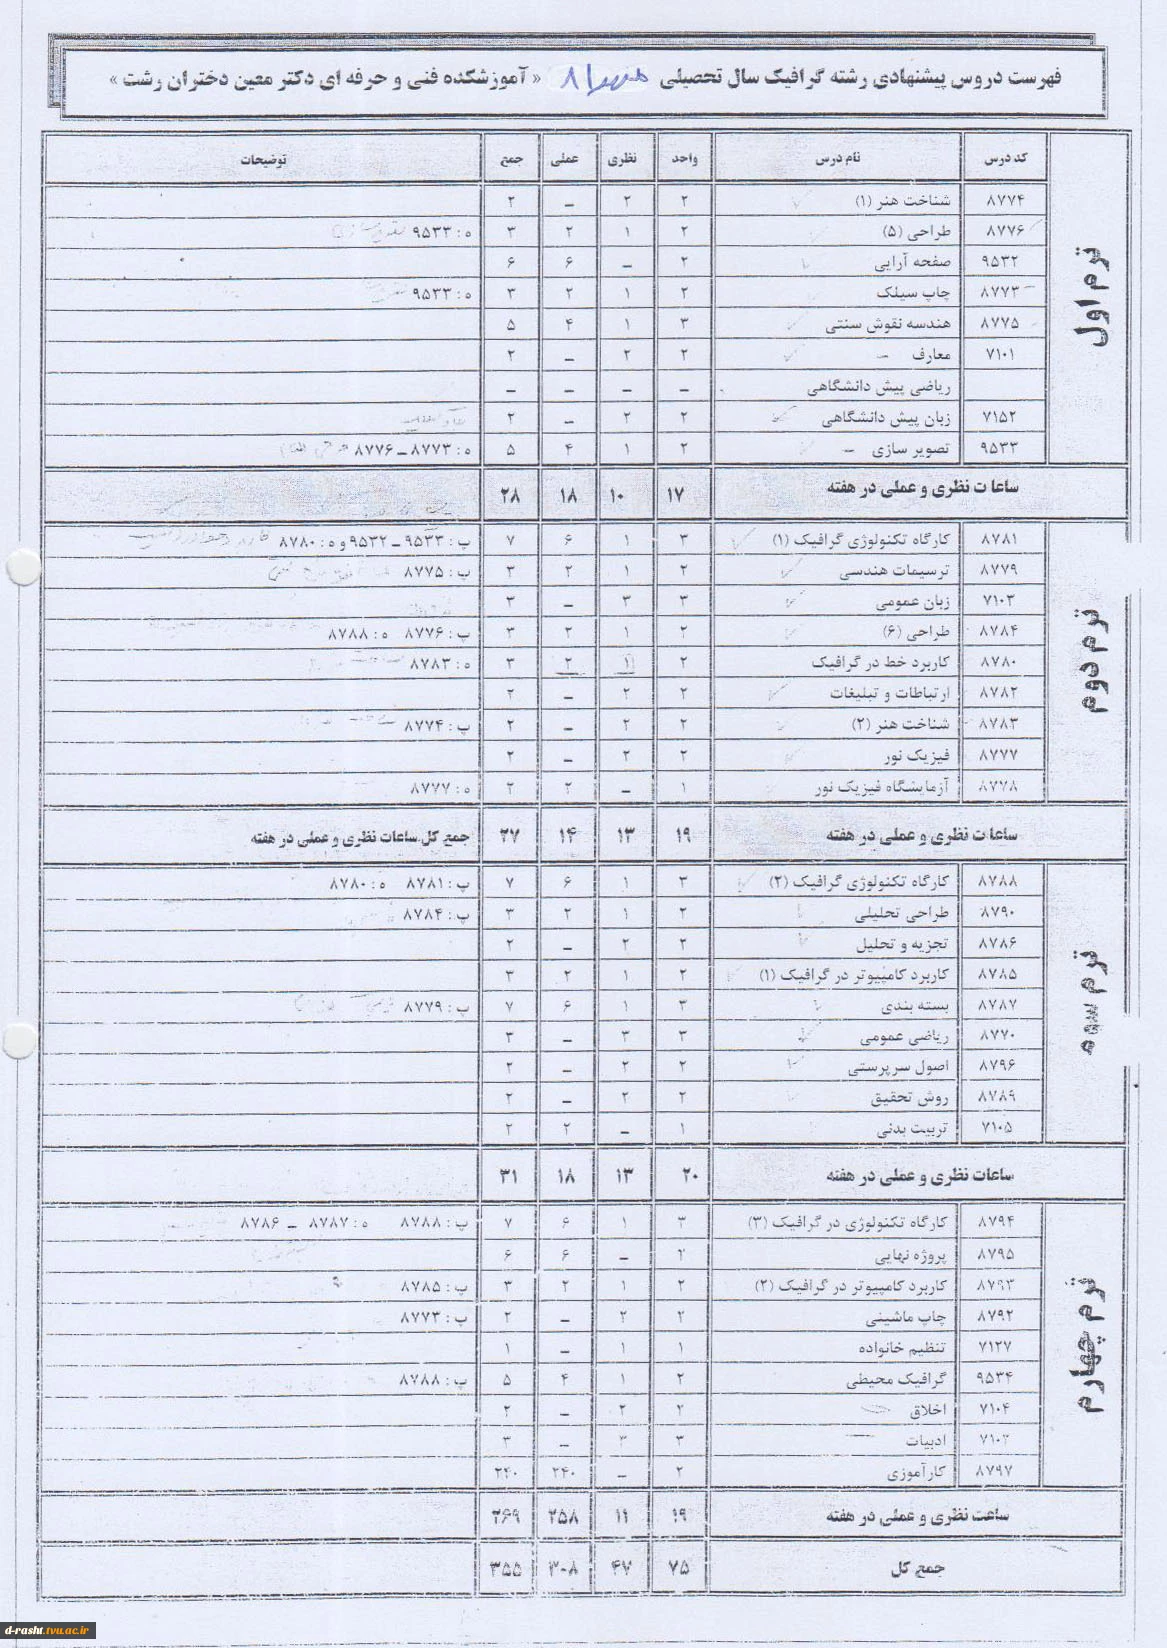 فهرست دروس پیشنهادی رشته گرافیک سال تحصیلی « آموزشکده فنی و حرفه ای دکتر معین دختران رشت »
کد درس نام درس واحد نظری عملی جمع توضیحات
ترم اول
۸۷۷۴ شناخت هنر (۱) ۲ ۲ _ ۲
۸۷۷۶ طراحی (۵) ۲ ۱ ۲ ۳ ه : ۹۵۳۳
۹۵۳۲ صفحه آرایی ۲ _ ۶ ۶
۸۷۷۳ چاپ سیلک ۲ ۱ ۲ ۳ ه : ۹۵۳۳
۸۷۷۵ هندسه نقوش سنتی ۳ ۱ ۴ ۵
۷۱۰۱ معارف ۲ ۲ _ ۲
ریاضی پیش دانشگاهی _ _ _ _
۷۱۵۲ زبان پیش دانشگاهی ۲ ۲ _ ۲
۹۵۳۳ تصویر سازی ۲ ۱ ۴ ۵ ه : ۸۷۷۳ _ ۸۷۷۶
ساعات نظری و عملی در هفته ۱۷ ۱۰ ۱۸ ۲۸
ترم دوم
۸۷۸۱ کارگاه تکنولوژی گرافیک (۱) ۳ ۱ ۶ ۷ پ : ۹۵۳۳ _ ۹۵۳۲ و ه : ۸۷۸۰
۸۷۷۹ ترسیمات هندسی ۲ ۱ ۲ ۳ پ : ۸۷۷۵
۷۱۰۳ زبان عمومی ۳ ۳ _ ۳
۸۷۸۴ طراحی (۶) ۲ ۱ ۲ ۳ پ : ۸۷۷۶ ه : ۸۷۸۸
۸۷۸۰ کاربرد خط در گرافیک ۲ ۱ ۲ ۳ ه : ۸۷۸۳
۸۷۸۲ ارتباطات و تبلیغات ۲ ۲ _ ۲
۸۷۸۳ شناخت هنر (۲) ۲ ۲ _ ۲ پ : ۸۷۷۴
۸۷۷۷ فیزیک نور ۲ ۲ _ ۲
۸۷۷۸ آزمایشگاه فیزیک نور ۱ _ ۲ ۲ ه : ۸۷۷۷
ساعات نظری و عملی در هفته ۱۹ ۱۳ ۱۴ ۲۷ جمع کل ساعات نظری و عملی در هفته
ترم سوم
۸۷۸۸ کارگاه تکنولوژی گرافیک (۲) ۳ ۱ ۶ ۷ پ : ۸۷۸۱ ه : ۸۷۸۰
۸۷۹۰ طراحی تحلیلی ۲ ۱ ۲ ۳ پ : ۸۷۸۴
۸۷۸۶ تجزیه و تحلیل ۲ ۲ _ ۲
۸۷۸۵ کاربرد کامپیوتر در گرافیک (۱) ۲ ۱ ۲ ۳
۸۷۸۷ بسته بندی ۳ ۱ ۶ ۷ پ : ۸۷۷۹
۸۷۷۰ ریاضی عمومی ۳ ۳ _ ۳
۸۷۹۶ اصول سرپرستی ۲ ۲ _ ۲
۸۷۸۹ روش تحقیق ۲ ۲ _ ۲
۷۱۰۵ تربیت بدنی ۱ _ ۲ ۲
ساعات نظری و عملی در هفته ۲۰ ۱۳ ۱۸ ۳۱
ترم چهارم
۸۷۹۴ کارگاه تکنولوژی در گرافیک (۳) ۳ ۱ ۶ ۷ پ : ۸۷۸۸ ه : ۸۷۸۷ _ ۸۷۸۶
۸۷۹۵ پروژه نهایی ۲ _ ۶ ۶
۸۷۹۳ کاربرد کامپیوتر در گرافیک (۲) ۲ ۱ ۲ ۳ پ : ۸۷۸۵
۸۷۹۲ چاپ ماشینی ۲ ۲ _ ۲ پ : ۸۷۷۳
۷۱۲۷ تنظیم خانواده ۱ ۱ _ ۱
۹۵۳۴ گرافیک محیطی ۲ ۱ ۴ ۵ پ : ۸۷۸۸
۷۱۰۴ اخلاق ۲ ۲ _ ۲
۷۱۰۲ ادبیات ۳ ۳ _ ۳
۸۷۹۷ کارآموزی ۲ _ ۲۴۰ ۲۴۰
ساعت نظری و عملی در هفته ۱۹ ۱۱ ۲۵۸ ۲۶۹
جمع کل ۷۵ ۴۷ ۳۰۸ ۳۵۵
d-rasht.tvu.ac.ir